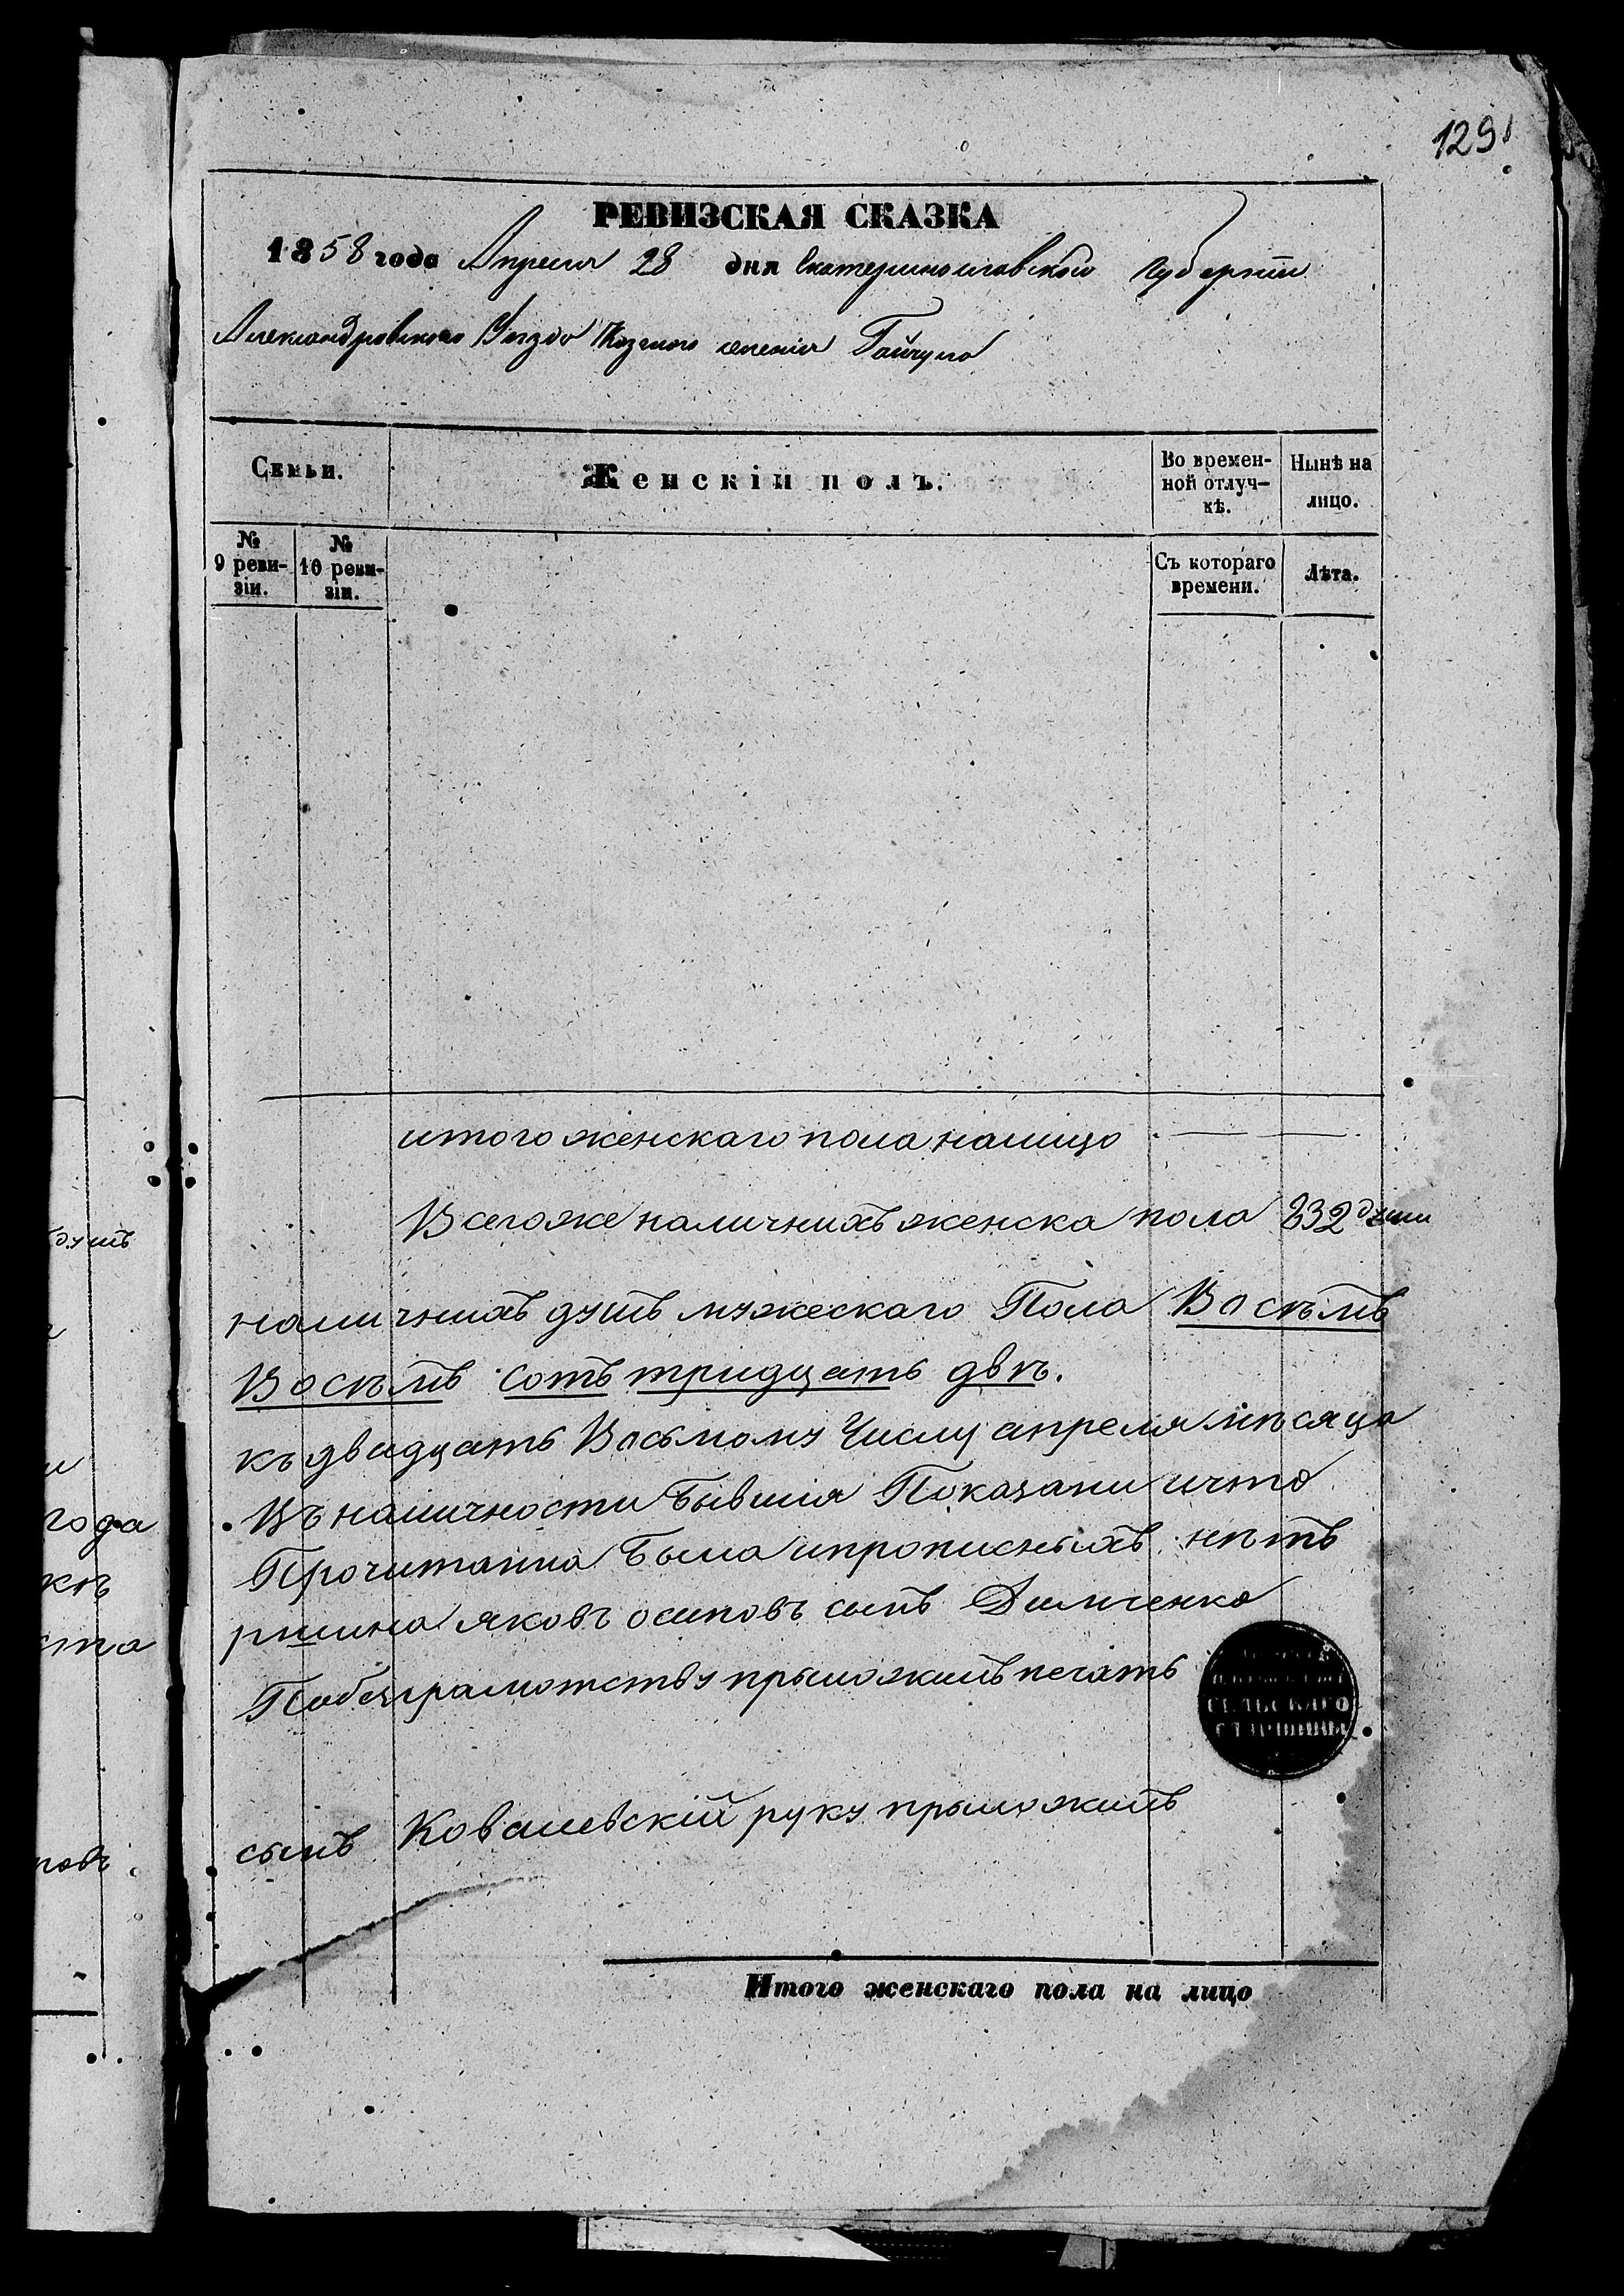 129
РЕВИЗСКАЯ СКАЗКА
1858 года Апреля 28 дня Екатеринославской губернии
Александровского Уезда Казеного селения Гайчула
Семьи.
Женскій полъ.
Во времен-
ной отлуч-
кѣ.
Нынѣ на
лицо.
№
9 реви-
зіи.
№
10 реви-
зіи.
Съ котораго
времени.
Лѣта.
итого женскаго пола налицо
Всегоже наличнихъ женска пола 832 души
наличнихъ душъ мужескаго Пола Восѣмъ
Восѣмъ сотъ тридцать двѣ.
къ двадцать Восьмому Числу апреля мѣсяца
Въ наличности Бывшия Показани ичто
Прочитанна Была ипрописныхъ нѣтъ
ршина яковъ осиповъ сынъ
Побезграмотству прыложилъ печать
СЕЛЬСКАГО
СТАРШИНЫ
сынъ Ковалевскій руку прыложилъ
Итого женскаго пола на лицо
душъ
года
ста